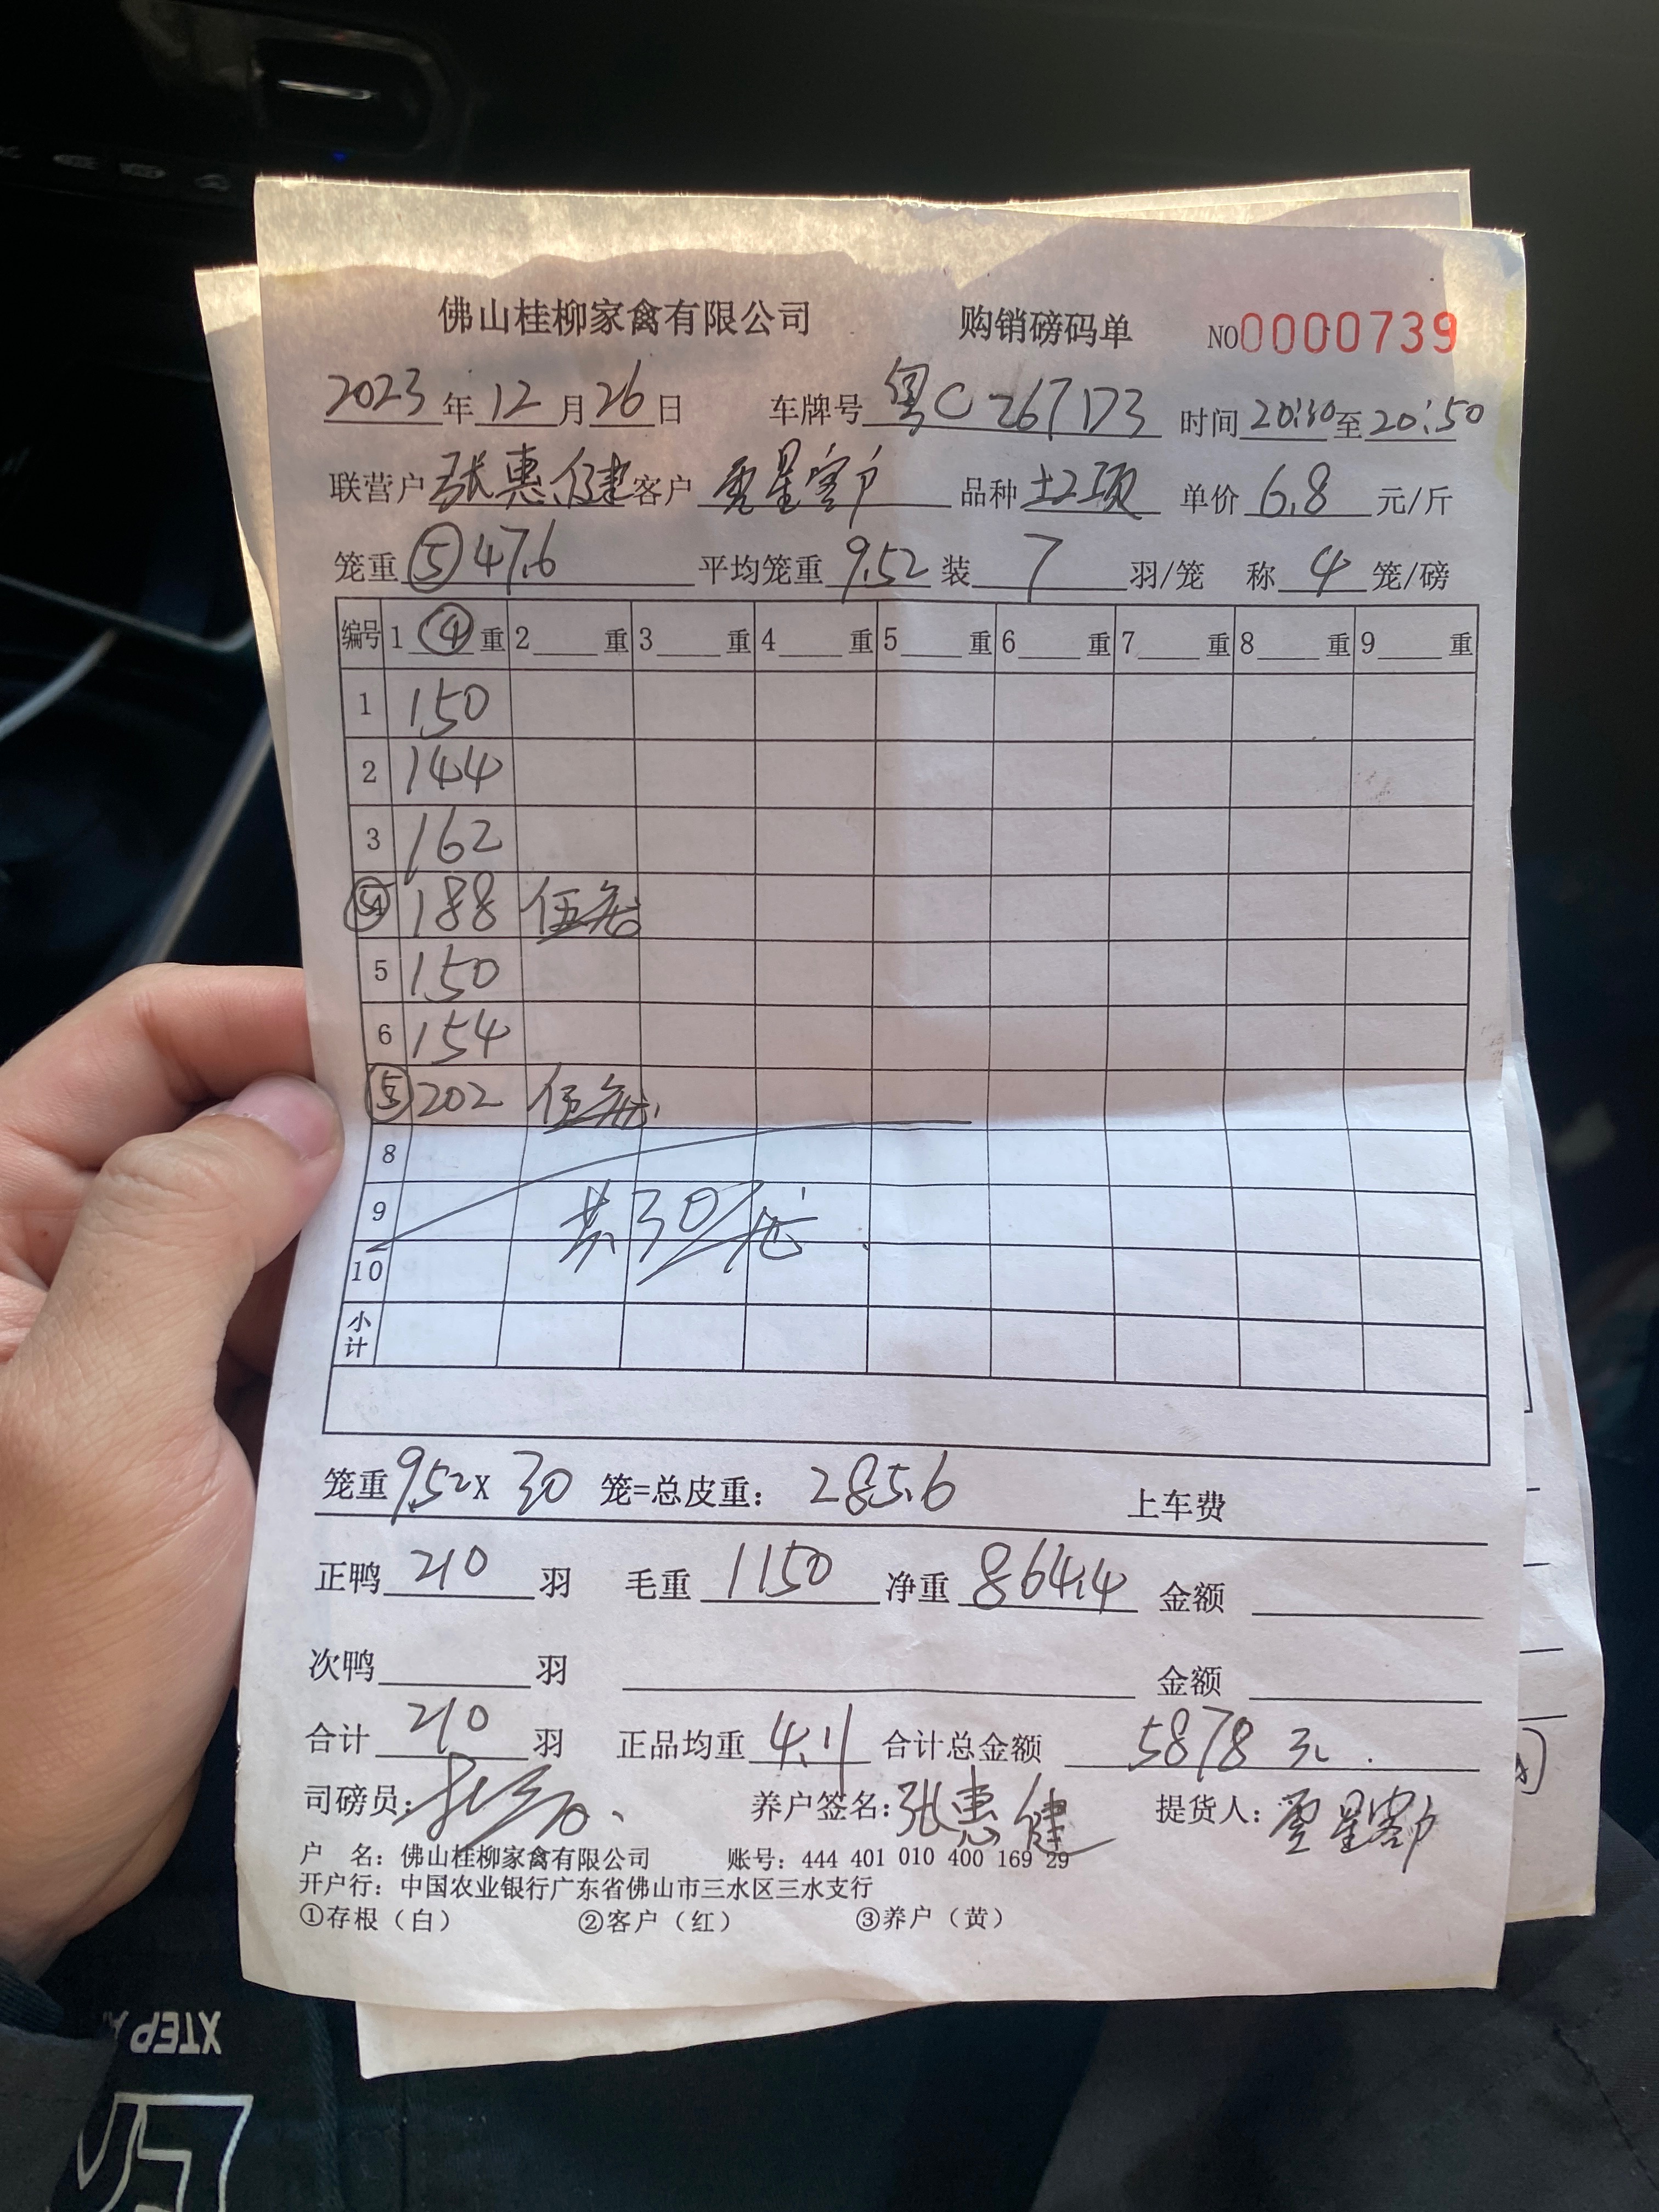 佛山桂柳家禽有限公司 购销磅码单 NO0000739
2023年12月26日 车牌号 粤C 267173 时间20:30至20:50
联营户 张惠健 客户 零星客户 品种 土2项 单价 6.8 元/斤
笼重 ⑤47.6 平均笼重 9.52 装 7 羽/笼 称 4 笼/磅
编号 1 ④ 重 2 重 3 重 4 重 5 重 6 重 7 重 8 重 9 重
1 150
2 144
3 162
⑤ 188 伍笼
5 150
6 154
⑤ 202 伍笼
8
9 共30笼
10
小计
笼重9.52X 30 笼=总皮重: 285.6 上车费
正鸭 210 羽 毛重 1150 净重 864.4 金额
次鸭 羽 金额
合计 210 羽 正品均重 4.11 合计总金额 5878 元.
司磅员: 养户签名: 张惠健 提货人: 零星客户
户 名: 佛山桂柳家禽有限公司 账号: 444 401 010 400 169 29
开户行: 中国农业银行广东省佛山市三水区三水支行
①存根(白) ②客户(红) ③养户(黄)
XTEP